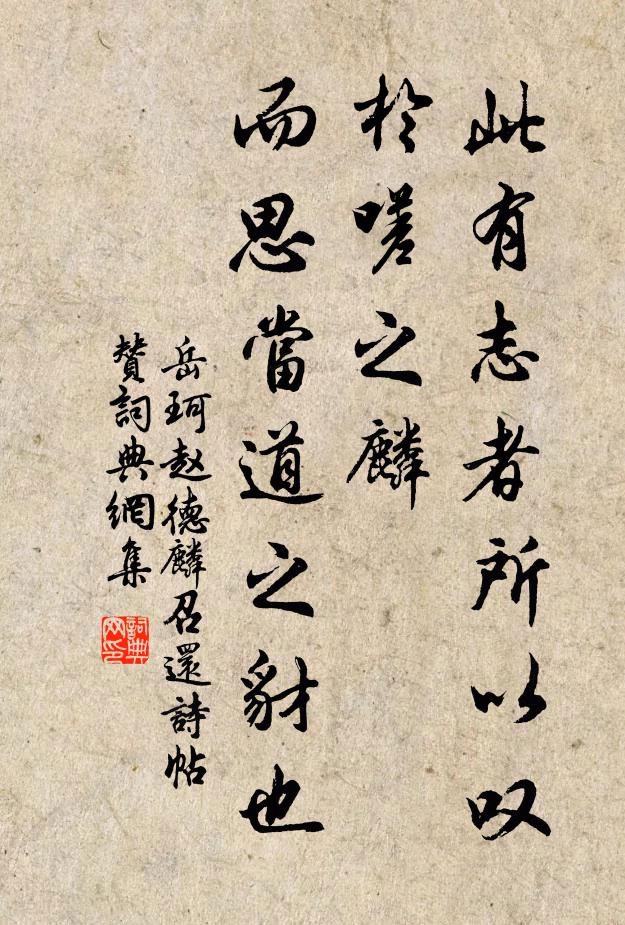 此有志者所以叹
於嗟之麟
而思當道之豺也
岳珂赵德麟召還詩帖
贊詞典網集
詞典网印